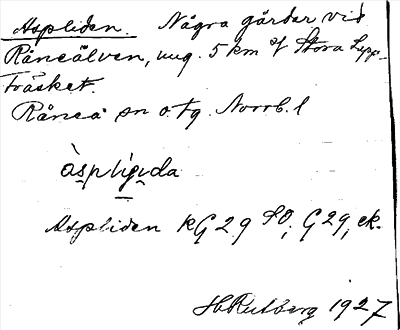 Aspliden. Några gårder vid
Råneälven, ung. 5 km of Stora Lepp-
träsket.
Råneå sn o. tg. Norrb. l
àspligịda
Aspliden kG 29 SO; G 29, ek.
H Rutberg 1927